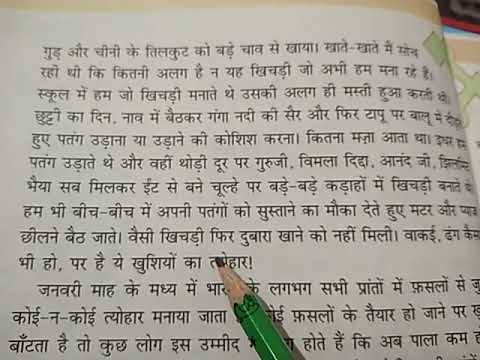 गुड़ और चीनी के तिलकुट को बड़े चाव से खाया। खाते-खाते मैं सोच
रही थी कि कितनी अलग है न यह खिचड़ी जो अभी हम मना रहे हैं।
स्कूल में हम जो खिचड़ी मनाते थे उसकी अलग ही मस्ती हुआ करती थी।
छुट्टी का दिन, नाव में बैठकर गंगा नदी की सैर और फिर टापू पर बालू में
हुए पतंग उड़ाना या उड़ाने की कोशिश करना। कितना मज़ा आता था। इधर हम
पतंग उड़ाते थे और वहीं थोड़ी दूर पर गुरुजी, विमला दिद्दा, आनंद जी,
भैया सब मिलकर ईंट से बने चूल्हे पर बड़े-बड़े कड़ाहों में खिचड़ी बनाते थे
हम भी बीच-बीच में अपनी पतंगों को सुस्ताने का मौका देते हुए मटर और प्याज
छीलने बैठ जाते। वैसी खिचड़ी फिर दुबारा खाने को नहीं मिली। वाकई, ढंग कैसा
भी हो, पर है ये खुशियों का त्योहार!
जनवरी माह के मध्य में के लगभग सभी प्रांतों में फ़सलों से
कोई-न-कोई त्योहार मनाया जाता फ़सलों के तैयार हो जाने पर
बाँटता है तो कुछ लोग इस उम्मीद में होते हैं कि अब पाला कम